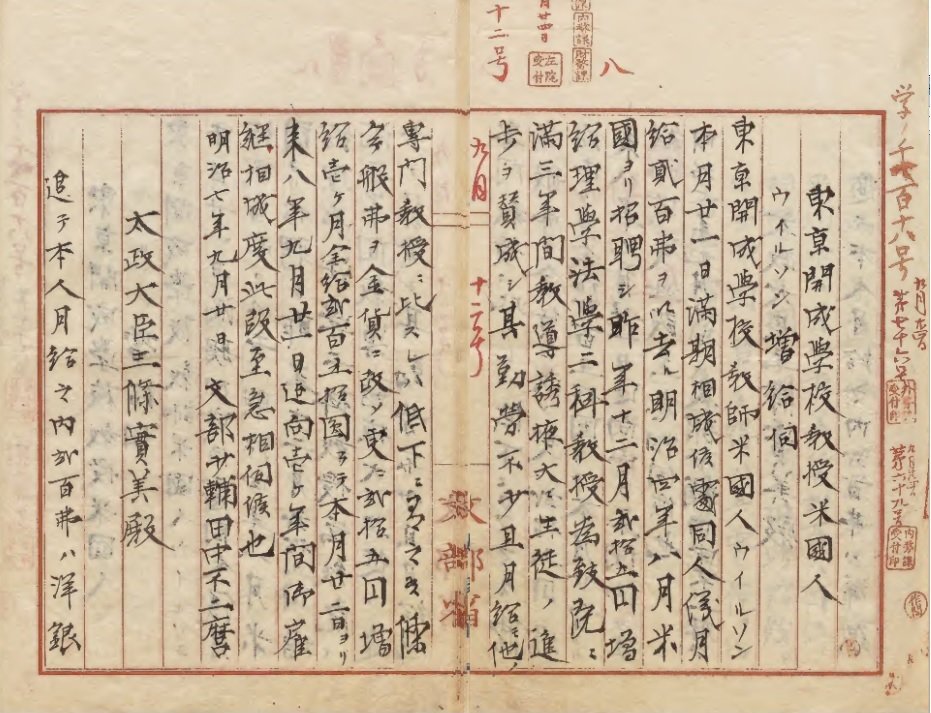 十二号
八
学ノ千七百十八号
東京開成学校教授米國人
ウイルソン増給伺
東京開成學校教師米國人ウイルソン
本月廿一日満期相成候處同人儀月
給貳百弗ヲ以去ル明治四年八月米
國ヨリ招聘シ昨年十二月貳拾五円増
給理學法學二科教授為致既ニ
満三年間教導誘掖大ニ生徒ノ進
歩ヲ賛成シ其勤労不少且月給モ他ノ
九月
十二号
文部省
専門教授ニ比其シ低下ニ有之候條
今般弗ヲ金貨ニ改メ更ニ貳拾五円増
給壱ヶ月金給貳百五拾圓ヲ以本月廿二日ヨリ
来八年九月廿一日迠向壱ヶ年間御雇
継相成度此段至急相伺候也
明治七年九月廿日 文部少輔田中不二麿
太政大臣三條實美殿
追テ本人月給之内貳百弗ハ洋銀